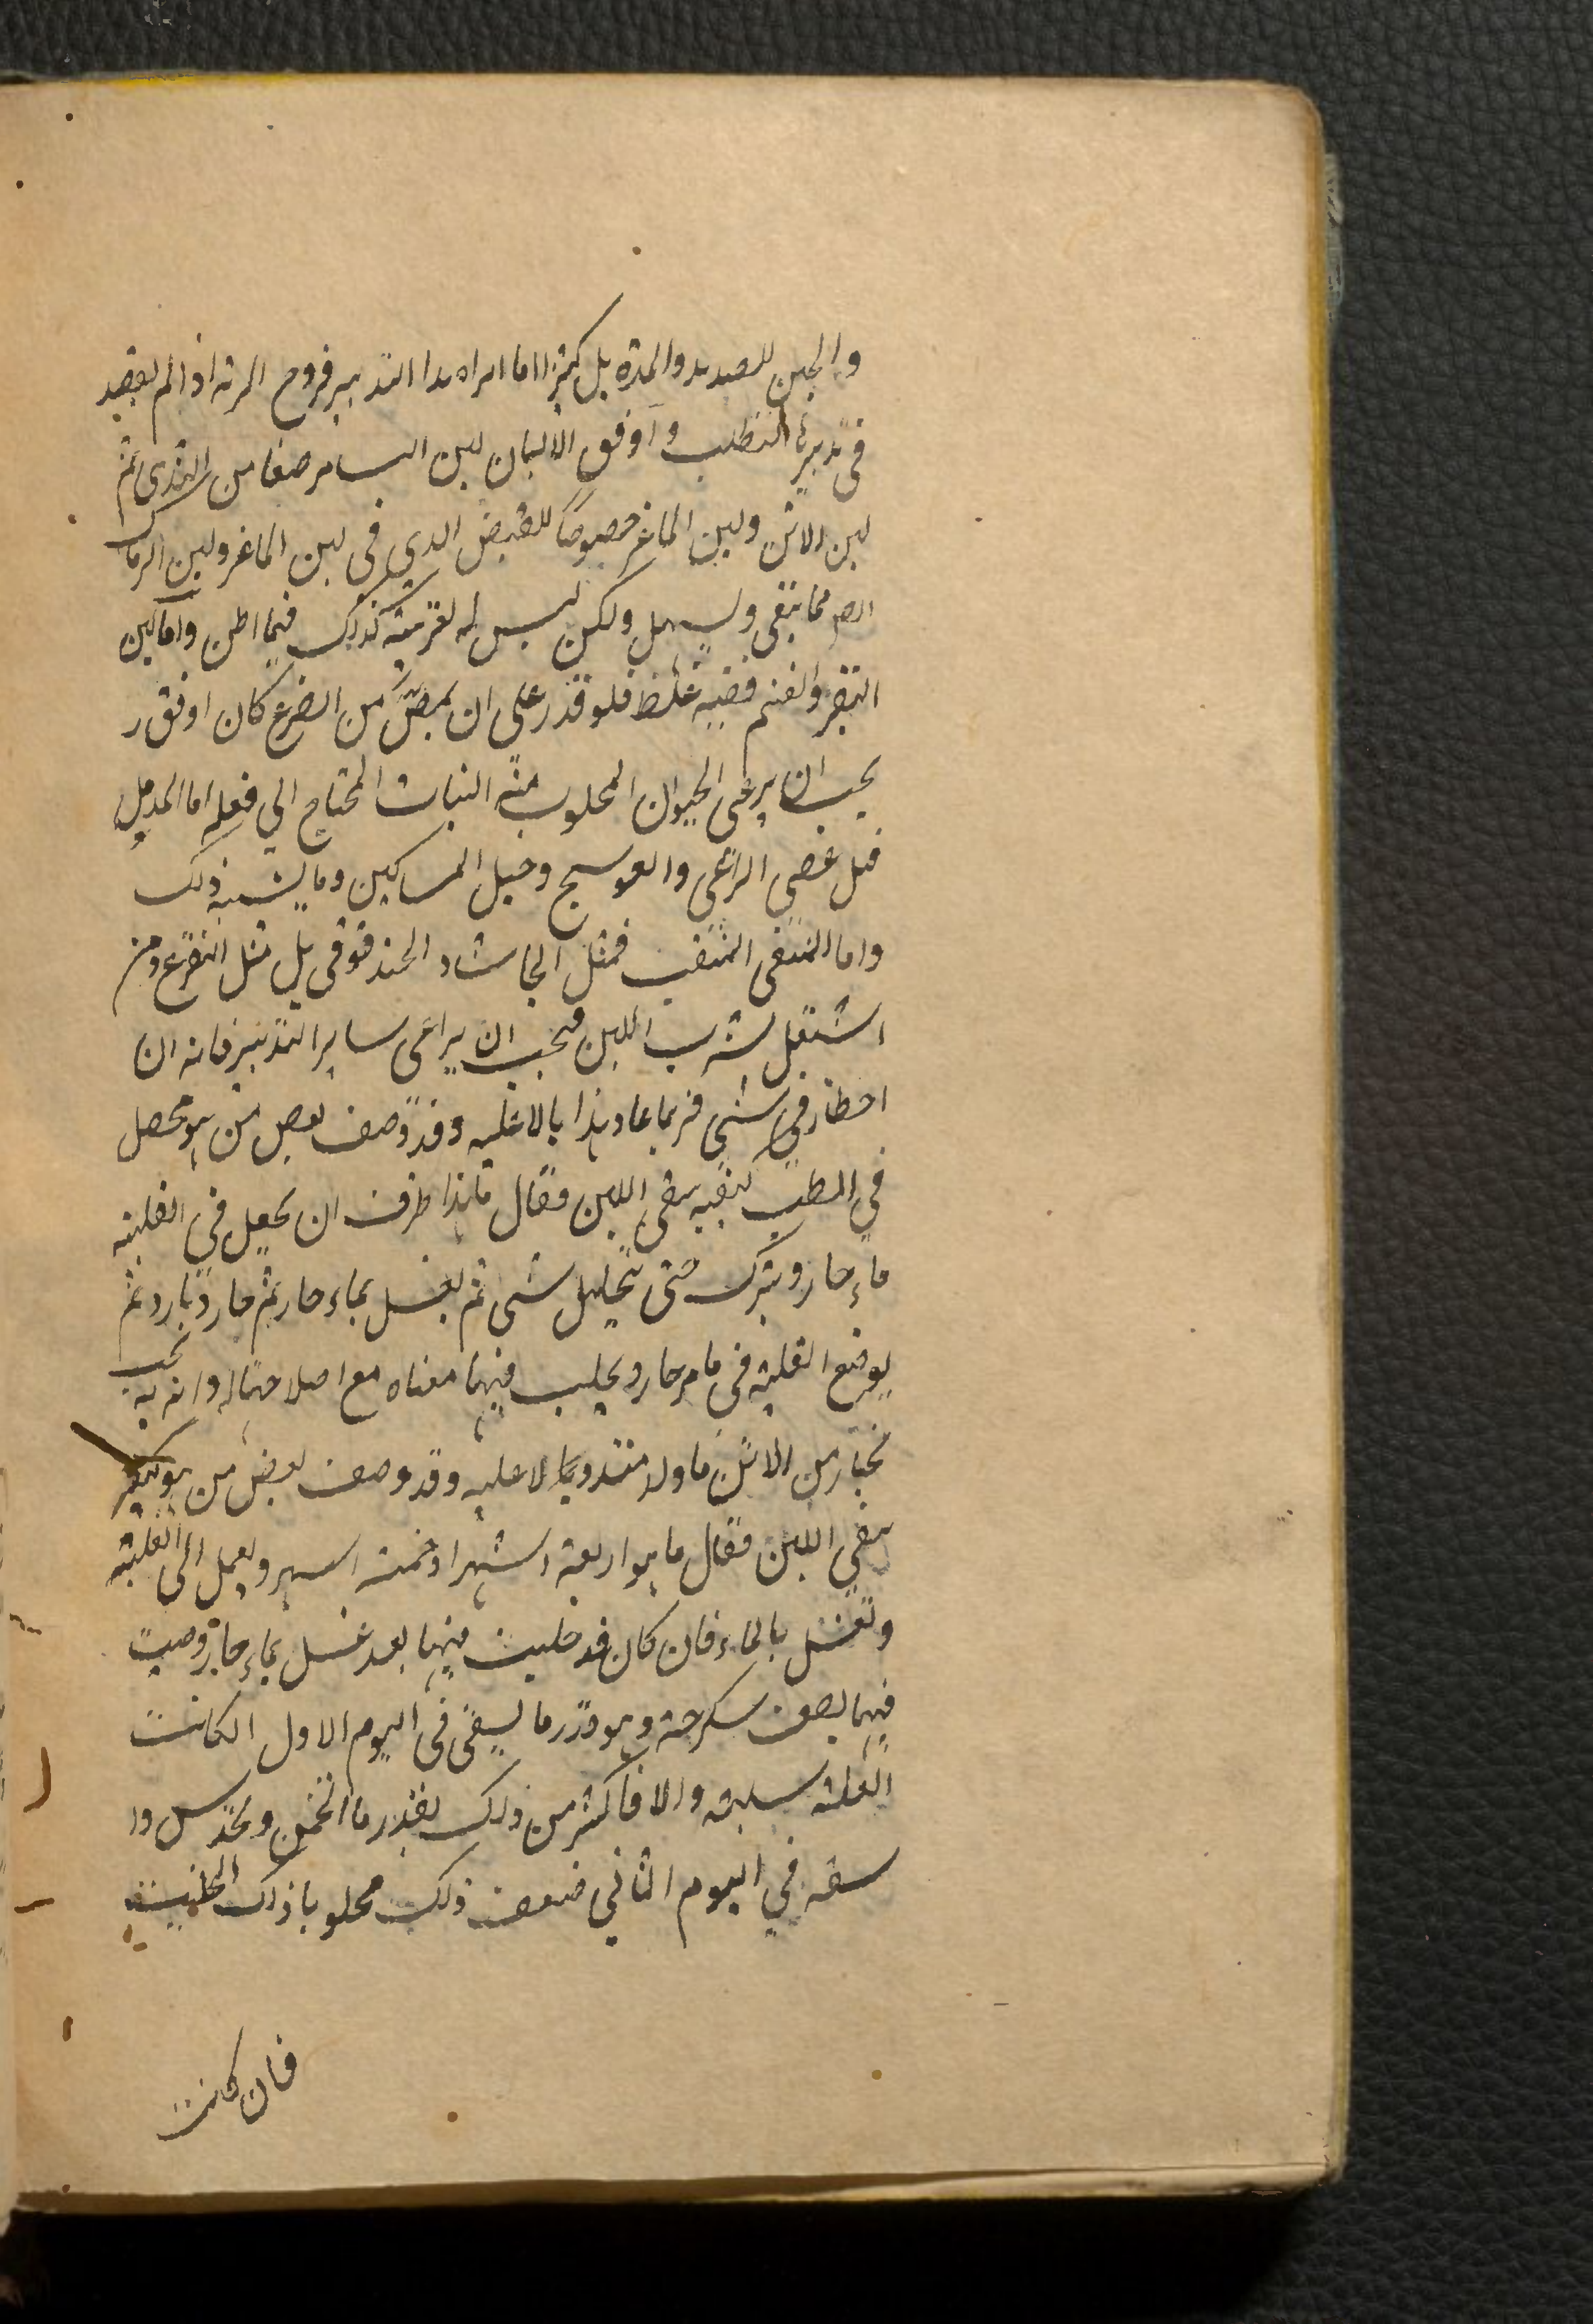 والجبن للصديد والمدة بل كثيرا اما ابراه هذا التدبير قروح الرية اذا لم يقصد
في تدبيرها التطلب واوفق الالبان لبن النسا مرضعا من الثدي ثم
لبن الاتن ولبن الماعز خصوصا للقبض الذي في لبن الماعز ولبن الرماك
ايضا مما ينقي ويسهل ولكن ليس له تغرية كذلك فيما اظن واما لبن
البقر والغنم ففيه غلظ فلو قدر على ان يمص من الضرع كان اوفق و
يجب ان يرعى الحيوان المحلوب منه النبات المحتاج الي فعله اما المدمل
فمثل عصي الراعي والعوسج وحبل المساكين وما يشبه ذلك
واما المنقي المنفث فمثل الحاشا والحندقوقي بل مثل اليتوع ومن
اشتغل بشرب اللبن فيجب ان يراعى ساير التدبير فانه ان
اخطا في شي فربما عاد هذا بالا عليه وقد وصف بعض من هو محصل
في الطب كيفيه سقي اللبن فقال ما هذا طرف ان يجعل في العلبة
ماء حار ويترك حتى يتحلل شي ثم يغسل بماء حار ثم حار وبارد ثم
يوضع العلبة في ماء حار ويحلب فيها معناه مع اصلاحنا له وانه يجب
يختار من الاتن ما ولد منذ وبالا عليه وقد وصف بعض من هو
سقي اللبن فقال ما هو اربعة اشهر او خمسة اشهر ويعمل الى العلبة
وتغسل بالماء فان كان قد حلبت فيها بعد غسل بماء حار وصبت
فيها نصف سكرجة وهو قدر ما يسقى في اليوم الاول ان كانت
العلة سليمة والا فاكثر من ذلك بقدر ما تخمن وتحدس وا
سقه في اليوم الثاني ضعف ذلك محلوبا ذلك الحليب
فان كانت